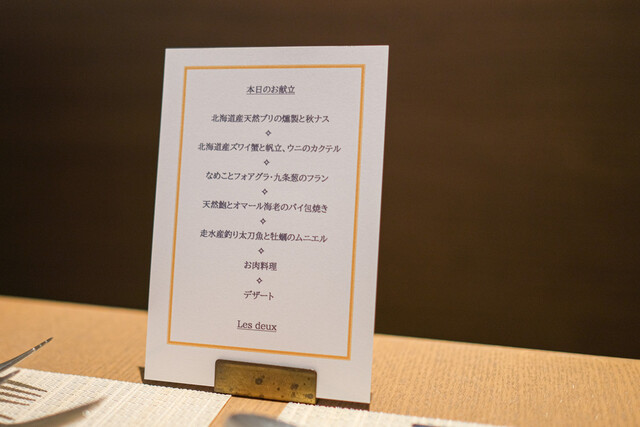 本日のお献立
北海道産天然ブリの燻製と秋ナス
北海道産ズワイ蟹と帆立、ウニのカクテル
なめことフォアグラ・九条葱のフラン
天然鮑とオマール海老のパイ包焼き
走水産釣り太刀魚と牡蠣のムニエル
お肉料理
デザート
Les deux